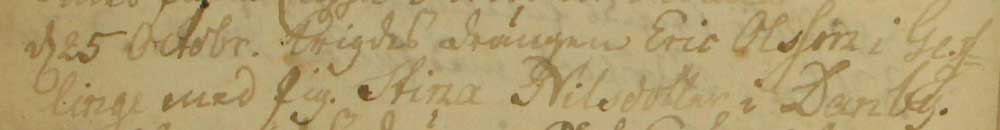 d 25 Octobr. wigdes drängen Eric Olsson i Gef-
linge med pig. Stina Nilsdotter i Danby.